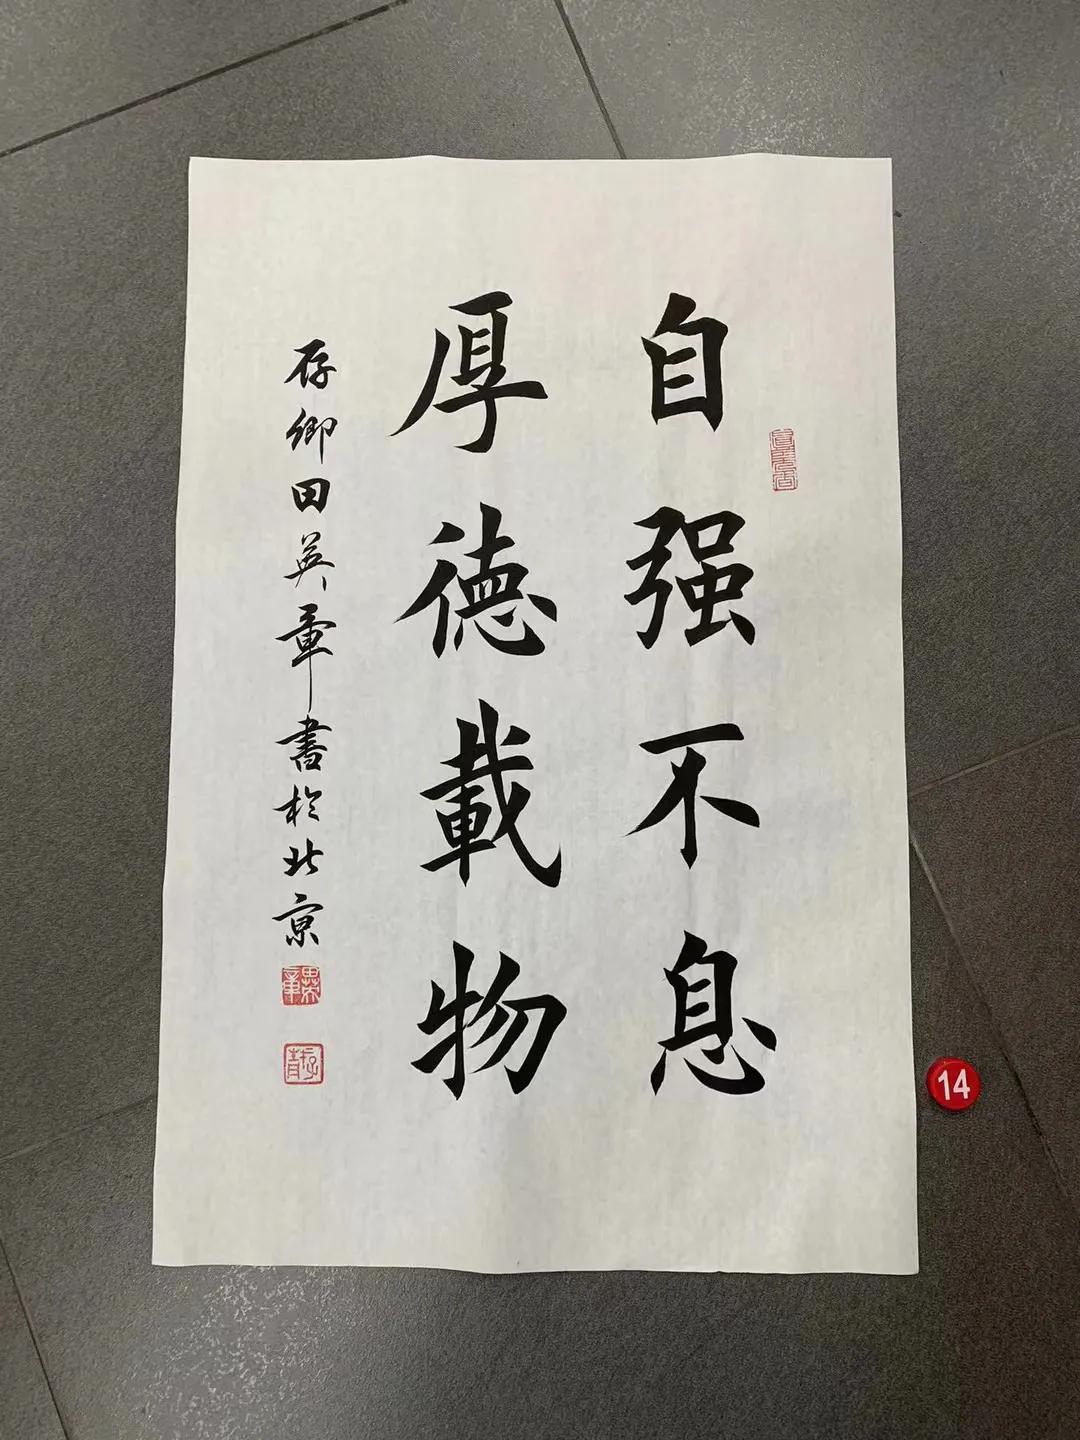 自强不息
厚德載物
存卿田英章書於北京
英章
存青
14